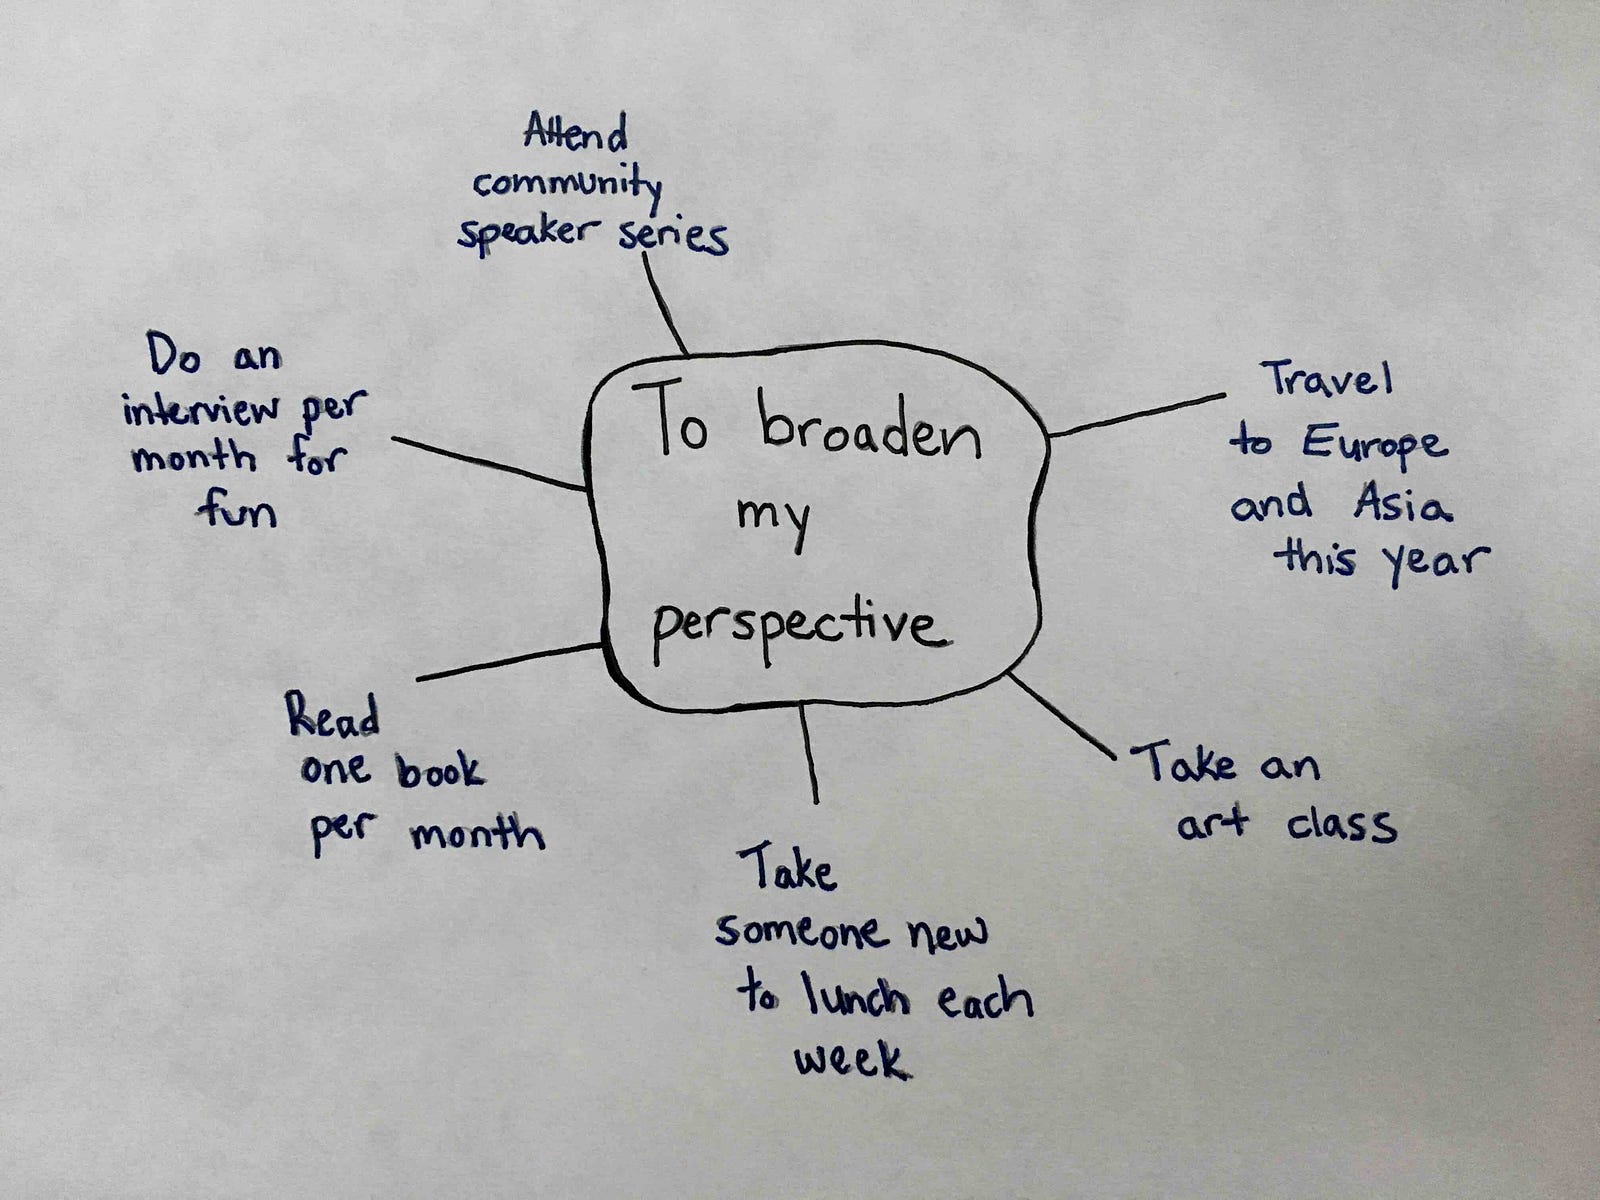 Attend
community
speaker series
Do an
interview per
month for
fun
To broaden
my
perspective
Travel
to Europe
and Asia
this year
Read
one book
per month
Take an
art class
Take
someone new
to lunch each
week